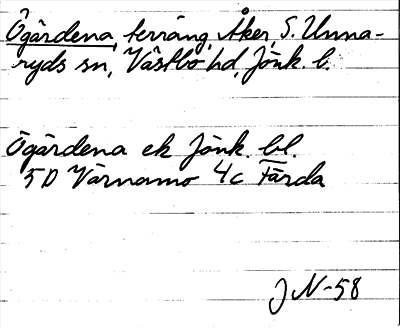 Ögärdena, terräng, Åker, S. Unna-
ryds sn, Västbo hd, Jönk. l.
Ögärdena ek Jönk. bl.
5D Värnamo 4c Färda
J N-58